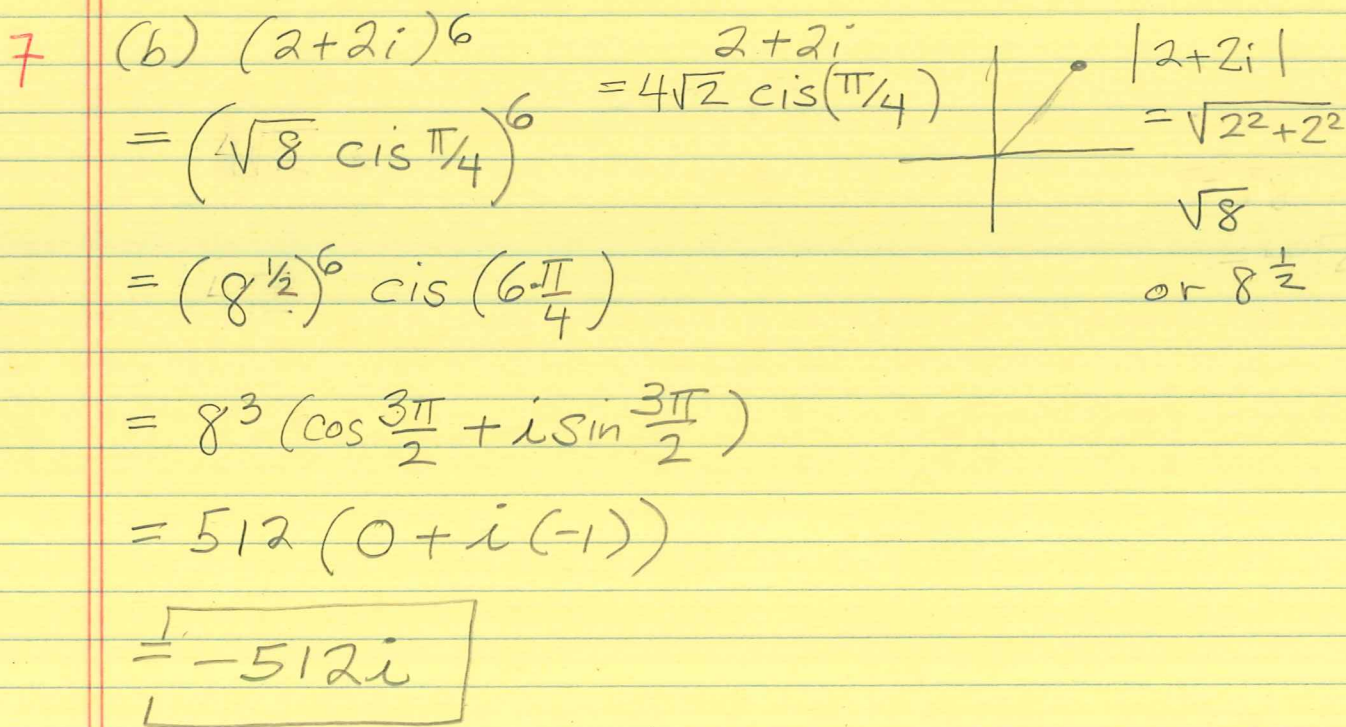 7 (b) (2+2i)^6
= (√8 cis π/4)^6
= (8^½)^6 cis (6·π/4)
= 8^3 (cos 3π/2 + i sin 3π/2)
= 512 (0 + i (-1))
= -512i
2+2i
= 4√2 cis(π/4)
|2+2i|
= √2²+2²
√8
or 8^½